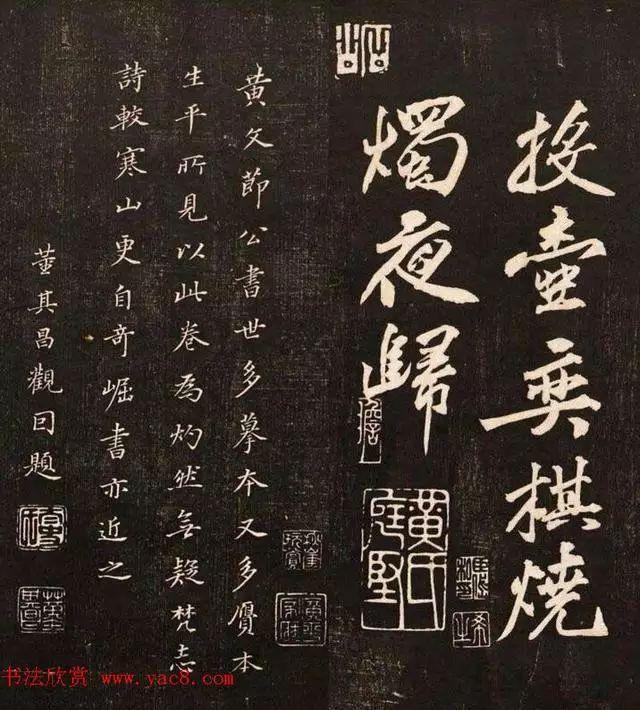 投壺弈棋燒
燭夜歸
黃氏庭堅
黃文節公書世多摹本又多贋本
生平所見以此卷為灼然無疑梵志
詩較寒山更自奇崛書亦近之
董其昌觀因題
书法欣赏 www.yac8.com